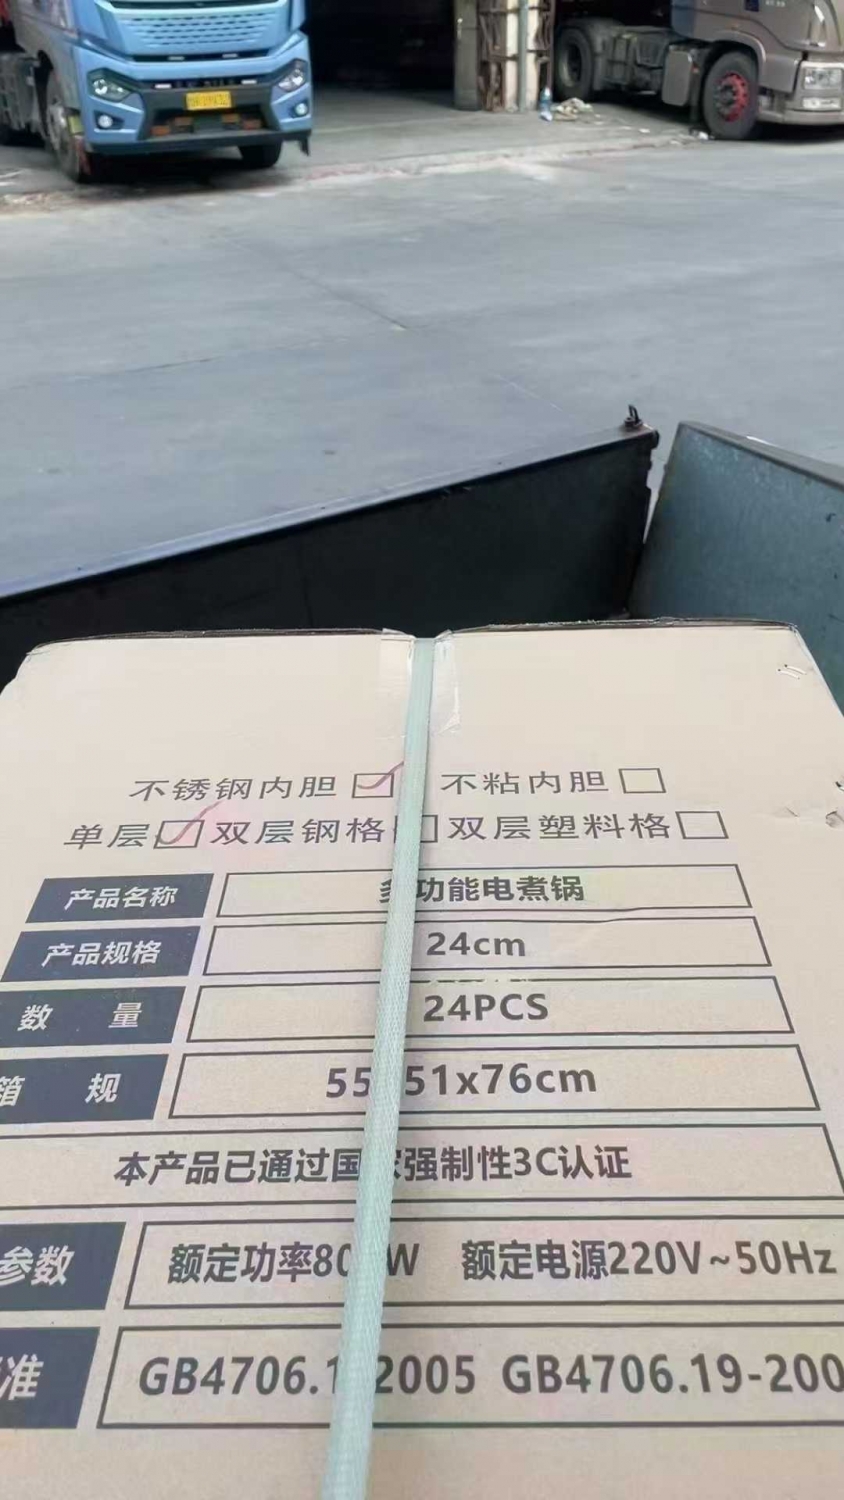 不锈钢内胆 不粘内胆
单层 双层钢格 双层塑料格
产品名称 功能电煮锅
产品规格 24cm
数量 24PCS
箱规 55 51x76cm
本产品已通过国 强制性3C认证
参数 额定功率80 W 额定电源220V~50Hz
准 GB4706.1 2005 GB4706.19-200